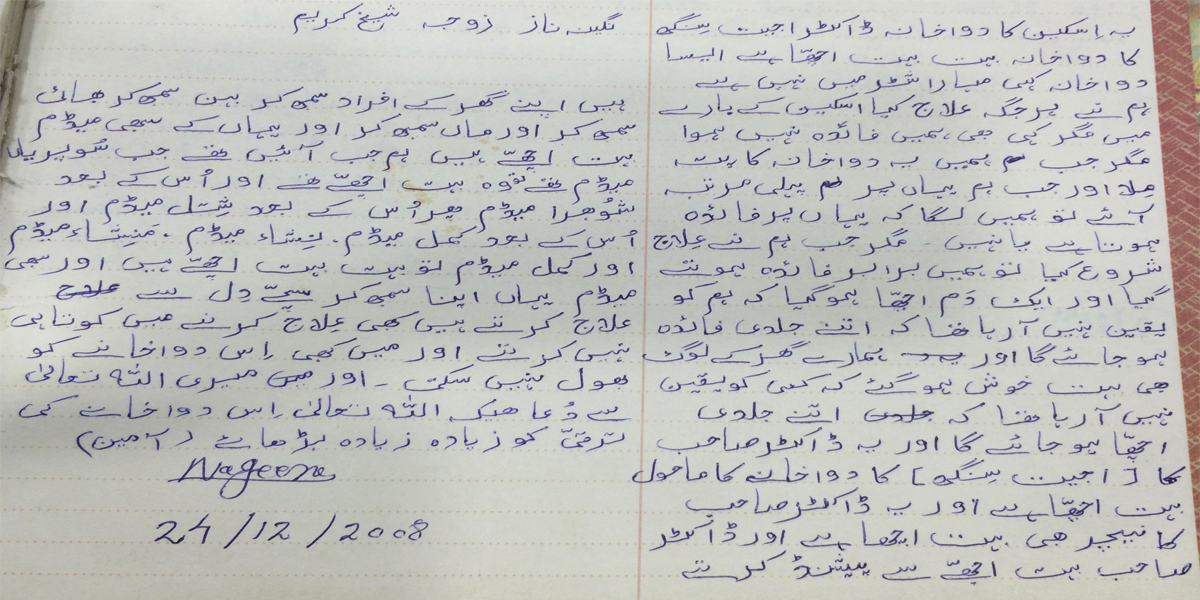 یہ اسکین کا دواخانہ ڈاکٹر اجیت سنگھ
کا دواخانہ بہت بہت اچھّا ہے ایسا
دواخانہ کہی مہاراشٹر میں نہیں ہے
ہم نے ہر جگہ علاج کیا اسکین کے بارے
میں مگر کہی بھی ہمیں فائدہ نہیں ہوا
مگر جب ہمیں یہ دواخانہ کا پتہ
مِلا اور جب ہم یہاں پر پہلی مرتبہ
آئے تو ہمیں لگا کہ یہاں پر فائدہ
ہوتا ہے یا نہیں۔ مگر جب ہم نے عِلاج
شروع کیا تو ہمیں برابر فائدہ ہوتے
گیا اور ایک دَم اچھّا ہوگیا کہ ہم کو
یقین نہیں آرہا تھا کہ اتنے جلدی فائدہ
ہو جائے گا اور ہمارے گھر کے لوگ
بھی بہت خوش ہوگئے کہ کسی کو یقین
نہیں آرہا تھا کہ اتنے جلدی
اچھّا ہو جائے گا اور یہ ڈاکٹر صاحب
کا [اجیت سِنگھ] کا دواخانے کا ماحول
بہت اچھّا ہے اور یہ ڈاکٹر صاحب
کا نیچر بھی بہت اچھا ہے اور ڈاکٹر
صاحب بہت اچھّے سے پیشنڈ کرتے
نگینہ ناز زوجہ شیخ کریم
ہیں اپنے گھر کے افراد سمجھ کر بہن سمجھ کر بھائی
سمجھ کر اور ماں سمجھ کر اور یہاں کے سبھی میڈم
بہت اچھّے ہیں ہم جب آئیں تھے جب
میڈم تھے تو وہ بہت اچھّے تھے اور اُس کے بعد
میڈم پھر اُس کے بعد شِتل میڈم اور
اُس کے بعد کمل میڈم۔ نِشاء میڈم۔ مَنِشاء میڈم
اور کمل میڈم تو بہت بہت اچھّے ہیں اور سبھی
میڈم یہاں اپنا سمجھ کر سچّے دِل سے
علاج کرتے ہیں کبھی عِلاج کرنے میں کوتاہی
نہیں کرتے اور میں کبھی اِس دواخانے کو
بھول نہیں سکتی۔ اور میری اللّٰہ تعالیٰ
سے دُعا ھیکہ اللّٰہ تعالیٰ اِس دواخانے کی
ترقّی کو زیادہ زیادہ بڑھائے (آمین)
Nageena
24/12/2008